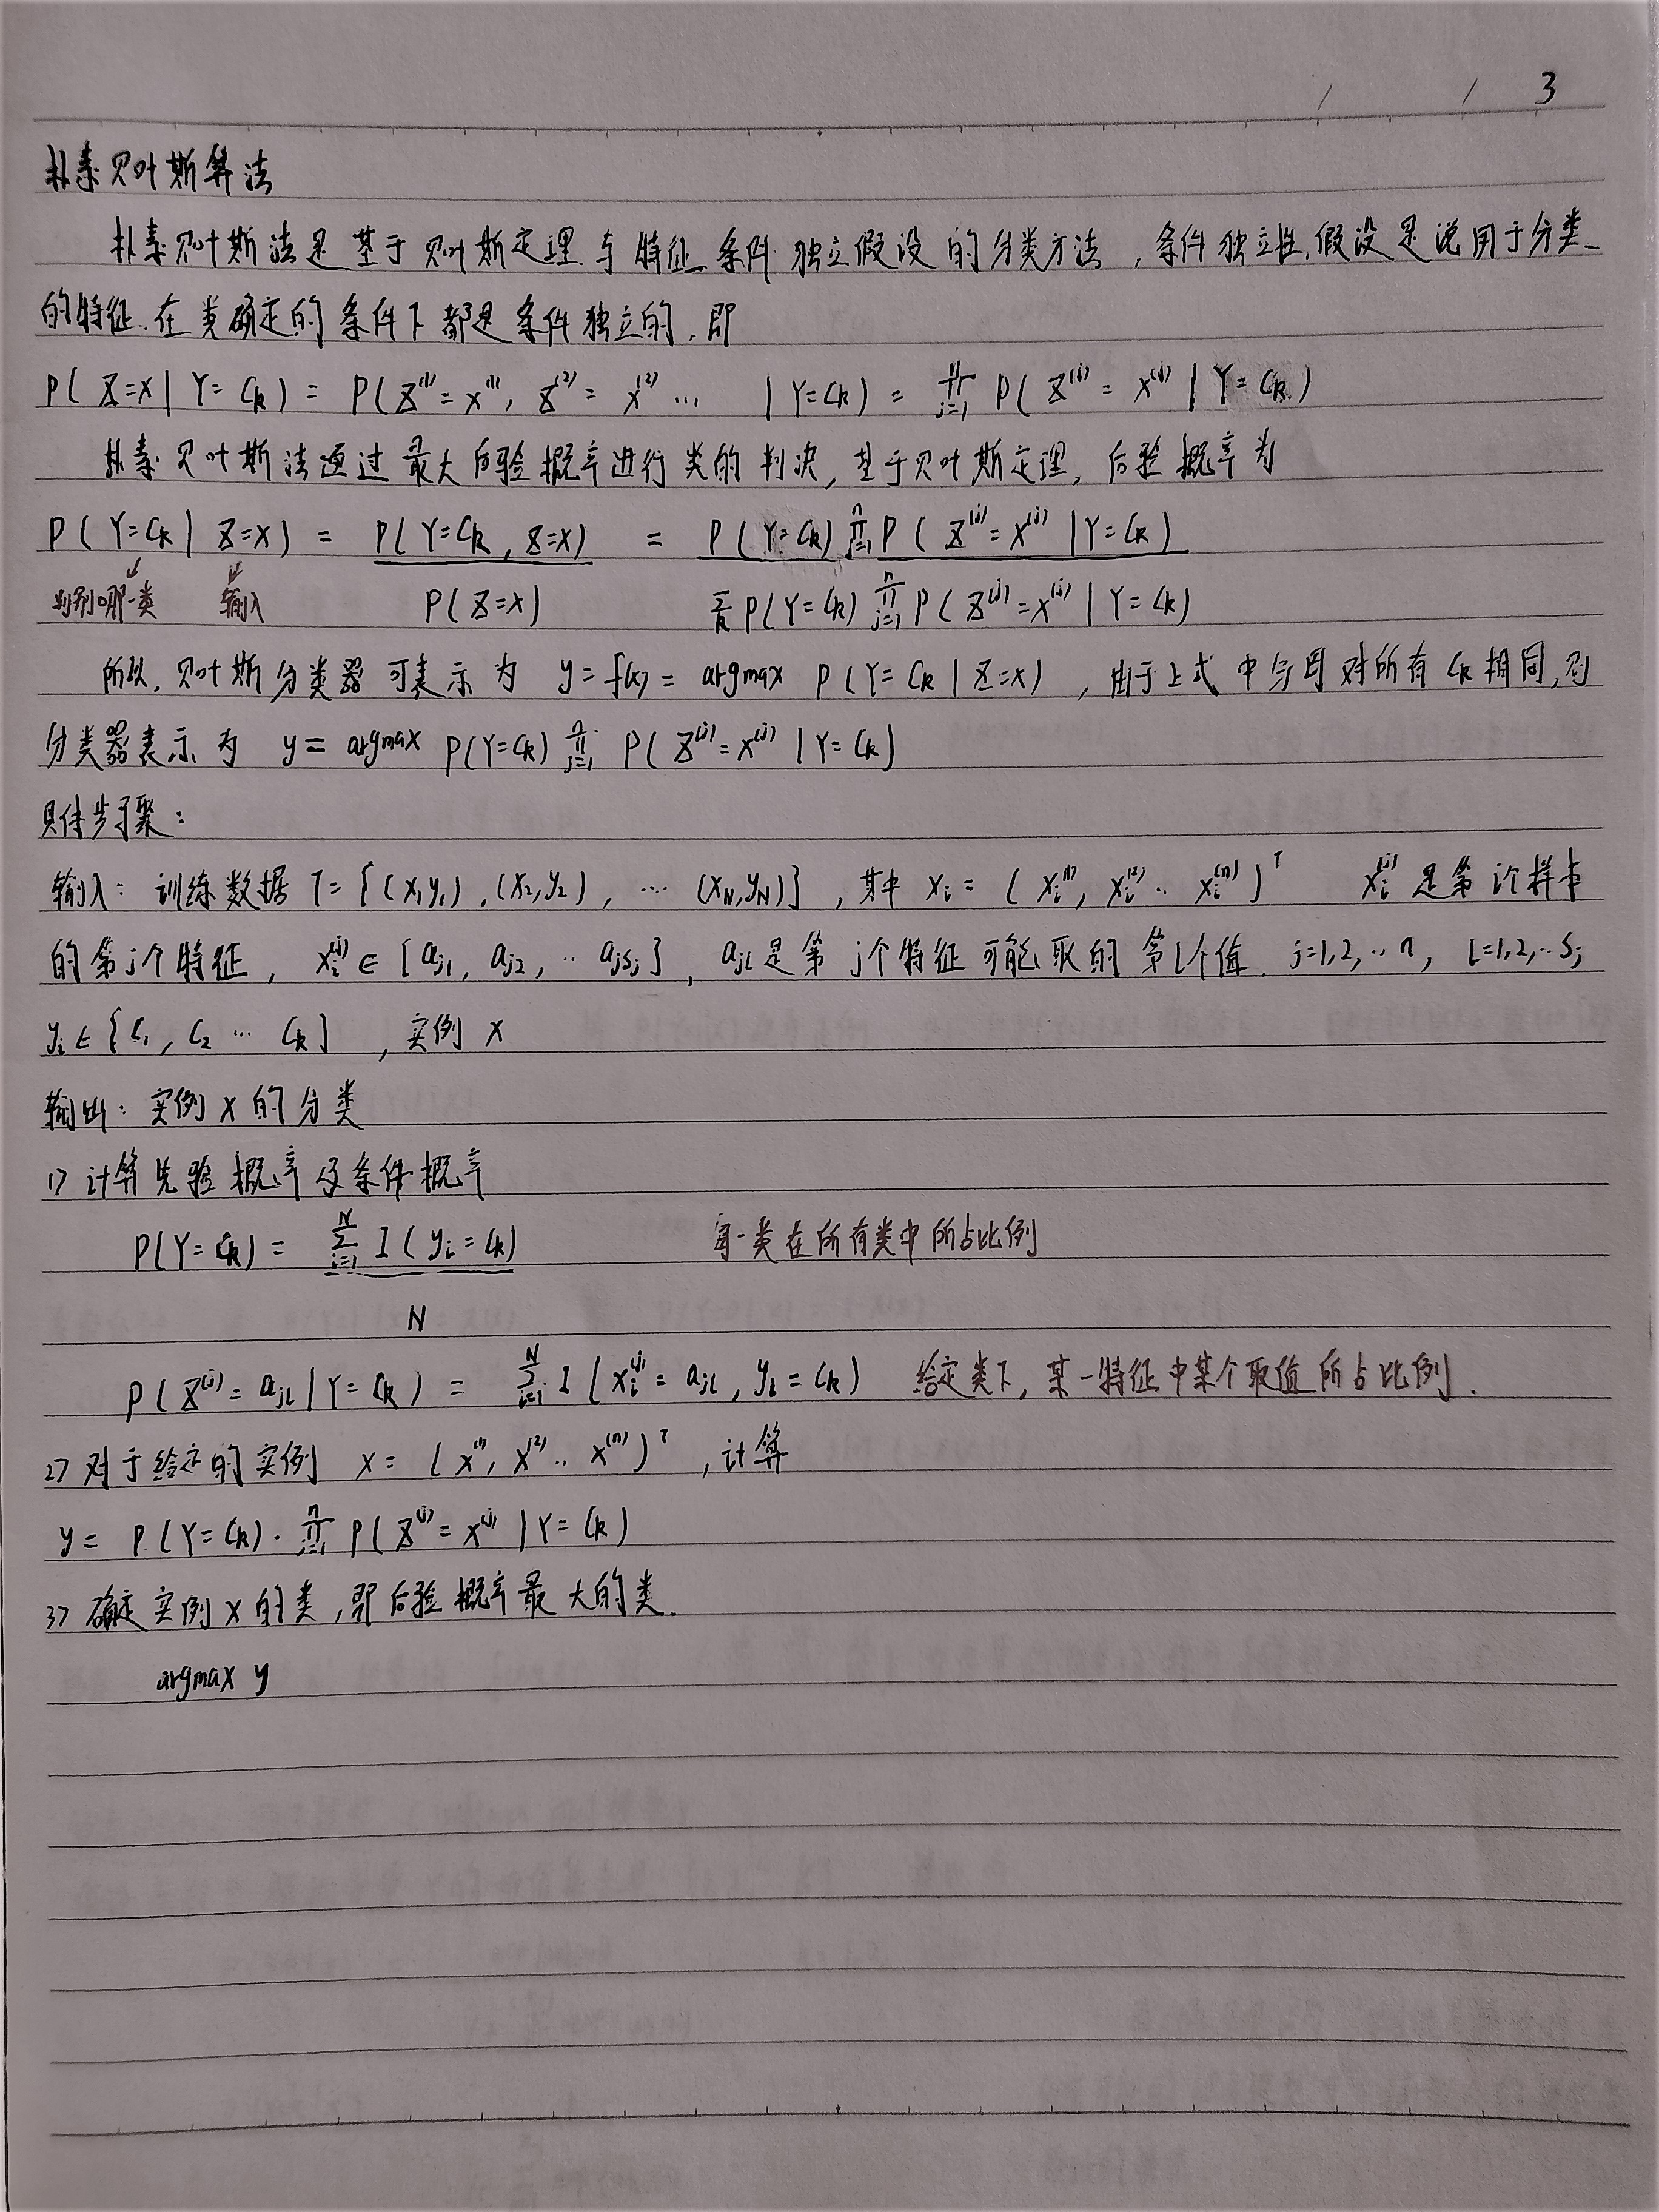 / / 3
朴素贝叶斯算法
朴素贝叶斯法是基于贝叶斯定理与特征条件独立假设的分类方法，条件独立性假设是说用于分类
的特征在类确定的条件下都是条件独立的，即
P(Z=x|Y=Ck) = P(Z⁽¹⁾=x⁽¹⁾, Z⁽²⁾=x⁽²⁾… |Y=Ck) = ∏ⁿⱼ₌₁ P(Z⁽ʲ⁾=x⁽ʲ⁾|Y=Ck)
朴素贝叶斯法通过最大后验概率进行类的判决，基于贝叶斯定理，后验概率为
P(Y=Ck|Z=x) = P(Y=Ck, Z=x) = P(Y=Ck) ∏ⁿⱼ₌₁ P(Z⁽ʲ⁾=x⁽ʲ⁾|Y=Ck)
判别哪一类 输入 P(Z=x) Σk P(Y=Ck) ∏ⁿⱼ₌₁ P(Z⁽ʲ⁾=x⁽ʲ⁾|Y=Ck)
所以，贝叶斯分类器可表示为 y=f(x)= argmax P(Y=Ck|Z=x)，由于上式中分母对所有Ck相同，则
分类器表示为 y= argmax P(Y=Ck) ∏ⁿⱼ₌₁ P(Z⁽ʲ⁾=x⁽ʲ⁾|Y=Ck)
具体步骤：
输入：训练数据 T={(x₁y₁), (x₂,y₂), … (xN,yN)}，其中 xᵢ=(xᵢ⁽¹⁾, xᵢ⁽²⁾.. xᵢ⁽ⁿ⁾)ᵀ xᵢ⁽ʲ⁾是第i个样本
的第j个特征，xᵢ⁽ʲ⁾∈{aj1, aj2, .. ajSj}，ajl是第j个特征可能取的第l个值. j=1,2,..n, l=1,2,..Sj
yᵢ∈{C₁, C₂ … Ck}，实例x
输出：实例x的分类
1) 计算先验概率及条件概率
P(Y=Ck) = Σᴺᵢ₌₁ I(yᵢ=Ck) 每一类在所有类中所占比例
N
P(Z⁽ʲ⁾=ajl|Y=Ck) = Σᴺᵢ₌₁ I(xᵢ⁽ʲ⁾=ajl, yᵢ=Ck) 给定类下，某一特征中某个取值所占比例.
2) 对于给定的实例 x=(x⁽¹⁾, x⁽²⁾.. x⁽ⁿ⁾)ᵀ，计算
y= P(Y=Ck)·∏ⁿⱼ₌₁ P(Z⁽ʲ⁾=x⁽ʲ⁾|Y=Ck)
3) 确定实例x的类，即后验概率最大的类.
argmax y